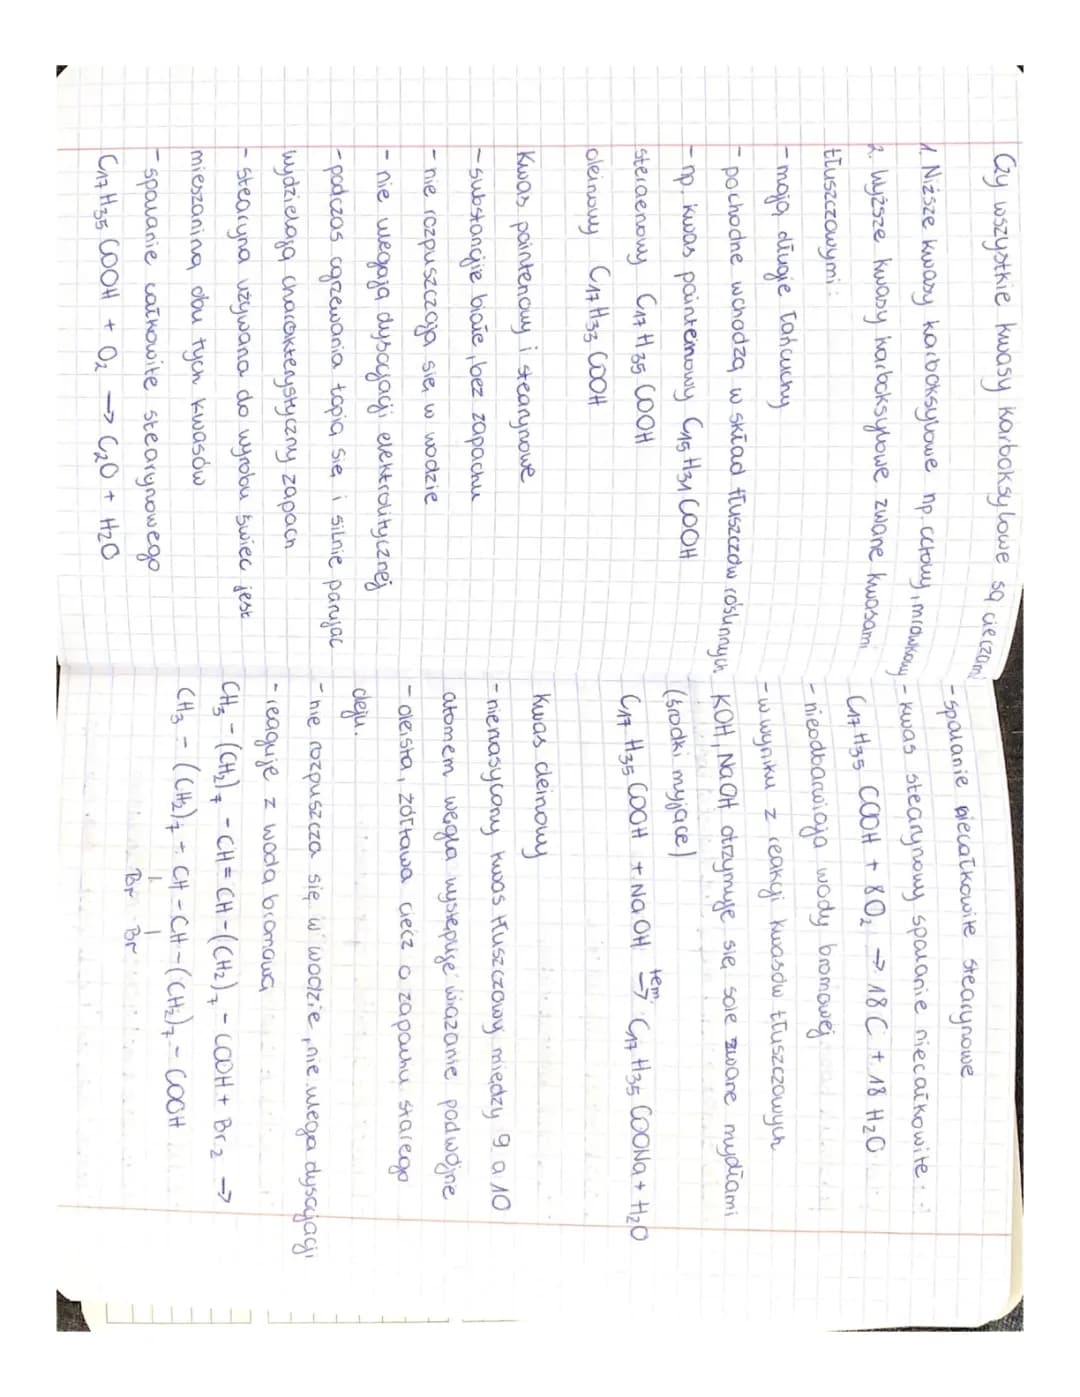 Czy wszystkie kwasy karboksylowe są cieczami
1. Niższe kwasy karboksylowe np. octowy, mrówkowy
2. Wyższe kwasy karboksylowe zwane kwasami
tłuszczowymi:
- mają długie łańcuchy
- pochodne wchodzą w skład tłuszczów roślinnych
- np. kwas palmitemowy C15 H31 COOH
steraenowy C17 H35 COOH
oleinowy C17 H33 COOH
Kwas palmitenowy i stearynowe
- substancje białe, bez zapachu
- nie rozpuszczają się w wodzie
- nie ulegają dysocjacji elektrolitycznej
- podczas ogrzewania topią się i silnie parując
wydzielają charakterystyczny zapach
- stearyna używana do wyrobu świec jest
mieszaniną obu tych kwasów
- spalanie całkowite stearynowego
C17 H35 COOH + O2 → C2O + H2O
- spalanie niecałkowite stearynowe
- kwas stearynowy spalanie niecałkowite.
C17 H35 COOH + 8O2 → 18C + 18 H2O
- nieodbarwiają wody bromowej
- w wyniku z reakcji kwasów tłuszczowych
KOH, NaOH otrzymuje się sole zwane mydłami
(środki myjące)
C17 H35 COOH + NaOH tem. → C17 H35 COONa + H2O
Kwas oleinowy
- nienasycony kwas tłuszczowy między 9 a 10
atomem węgla występuje wiązanie podwójne
- oleista, żółtawa ciecz o zapachu starego
oleju.
- nie rozpuszcza się w wodzie, nie ulega dysocjacji
- reaguje z wodą bromową
CH3 - (CH2)7 - CH = CH - (CH2)7 - COOH + Br2 →
CH3 - (CH2)7 - CH - CH - (CH2)7 - COOH
Br Br